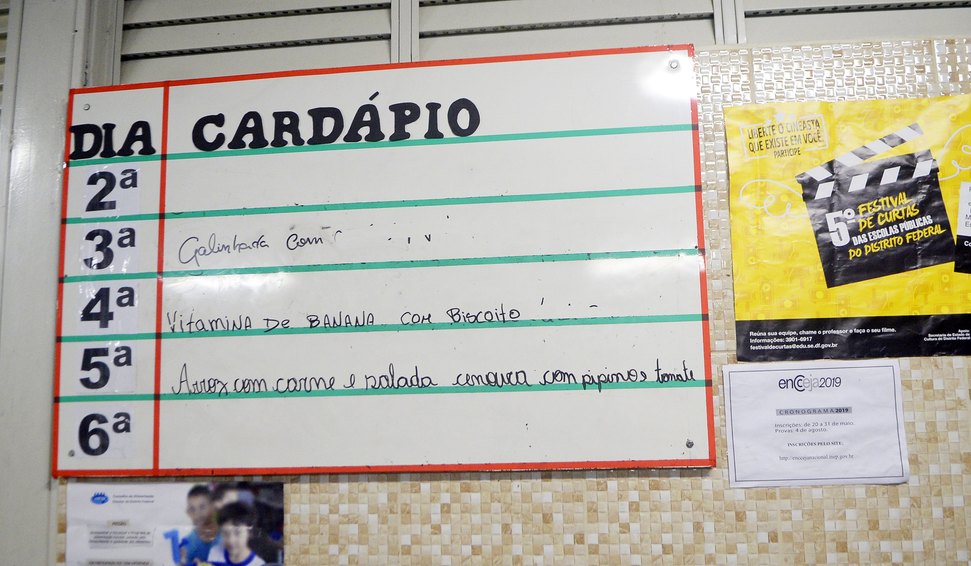 DIA CARDÁPIO
2ª
3ª Galinhada com
4ª Vitamina de BANANA com Biscoito
5ª Arroz com carne e salada cenoura com pipinos tomate
6ª
LIBERTE O CINEASTA
QUE EXISTE EM VOCÊ
PARTICIPE
5º FESTIVAL
DE CURTAS
DAS ESCOLAS PÚBLICAS
DO DISTRITO FEDERAL
Reúna sua equipe, chame o professor e faça o seu filme.
Informações: 3901-6917
festivaldecurtas@edu.se.df.gov.br
Apoio
Secretaria de Estado de
Cultura do Distrito Federal
encceja2019
CRONOGRAMA 2019
Inscrições: de 20 a 31 de maio.
Provas: 4 de agosto.
INSCRIÇÕES PELO SITE:
http://enccejanacional.inep.gov.br